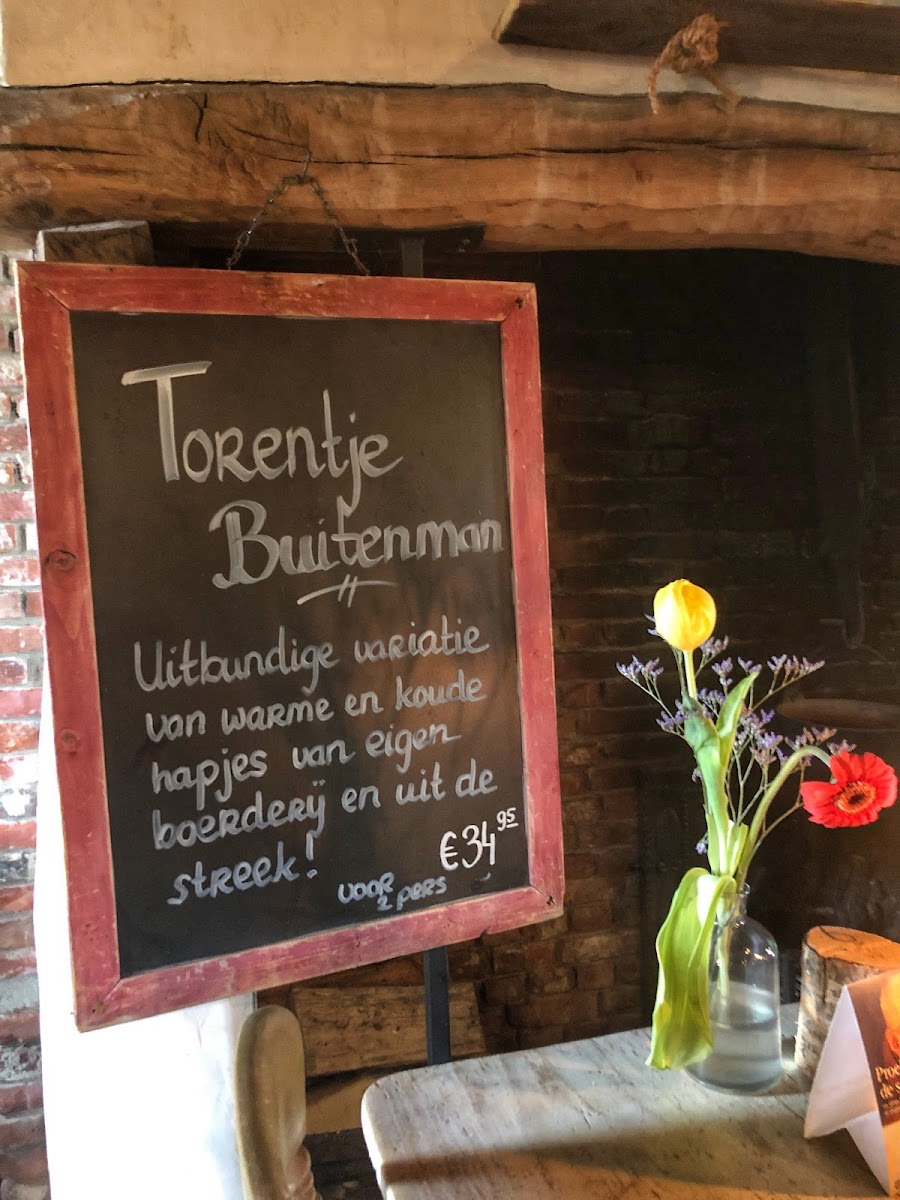 Torentje
Buitenman
Uitbundige variatie
van warme en koude
hapjes van eigen
boerderij en uit de
streek!
€34 95
voor
2 pers
Proe
de s